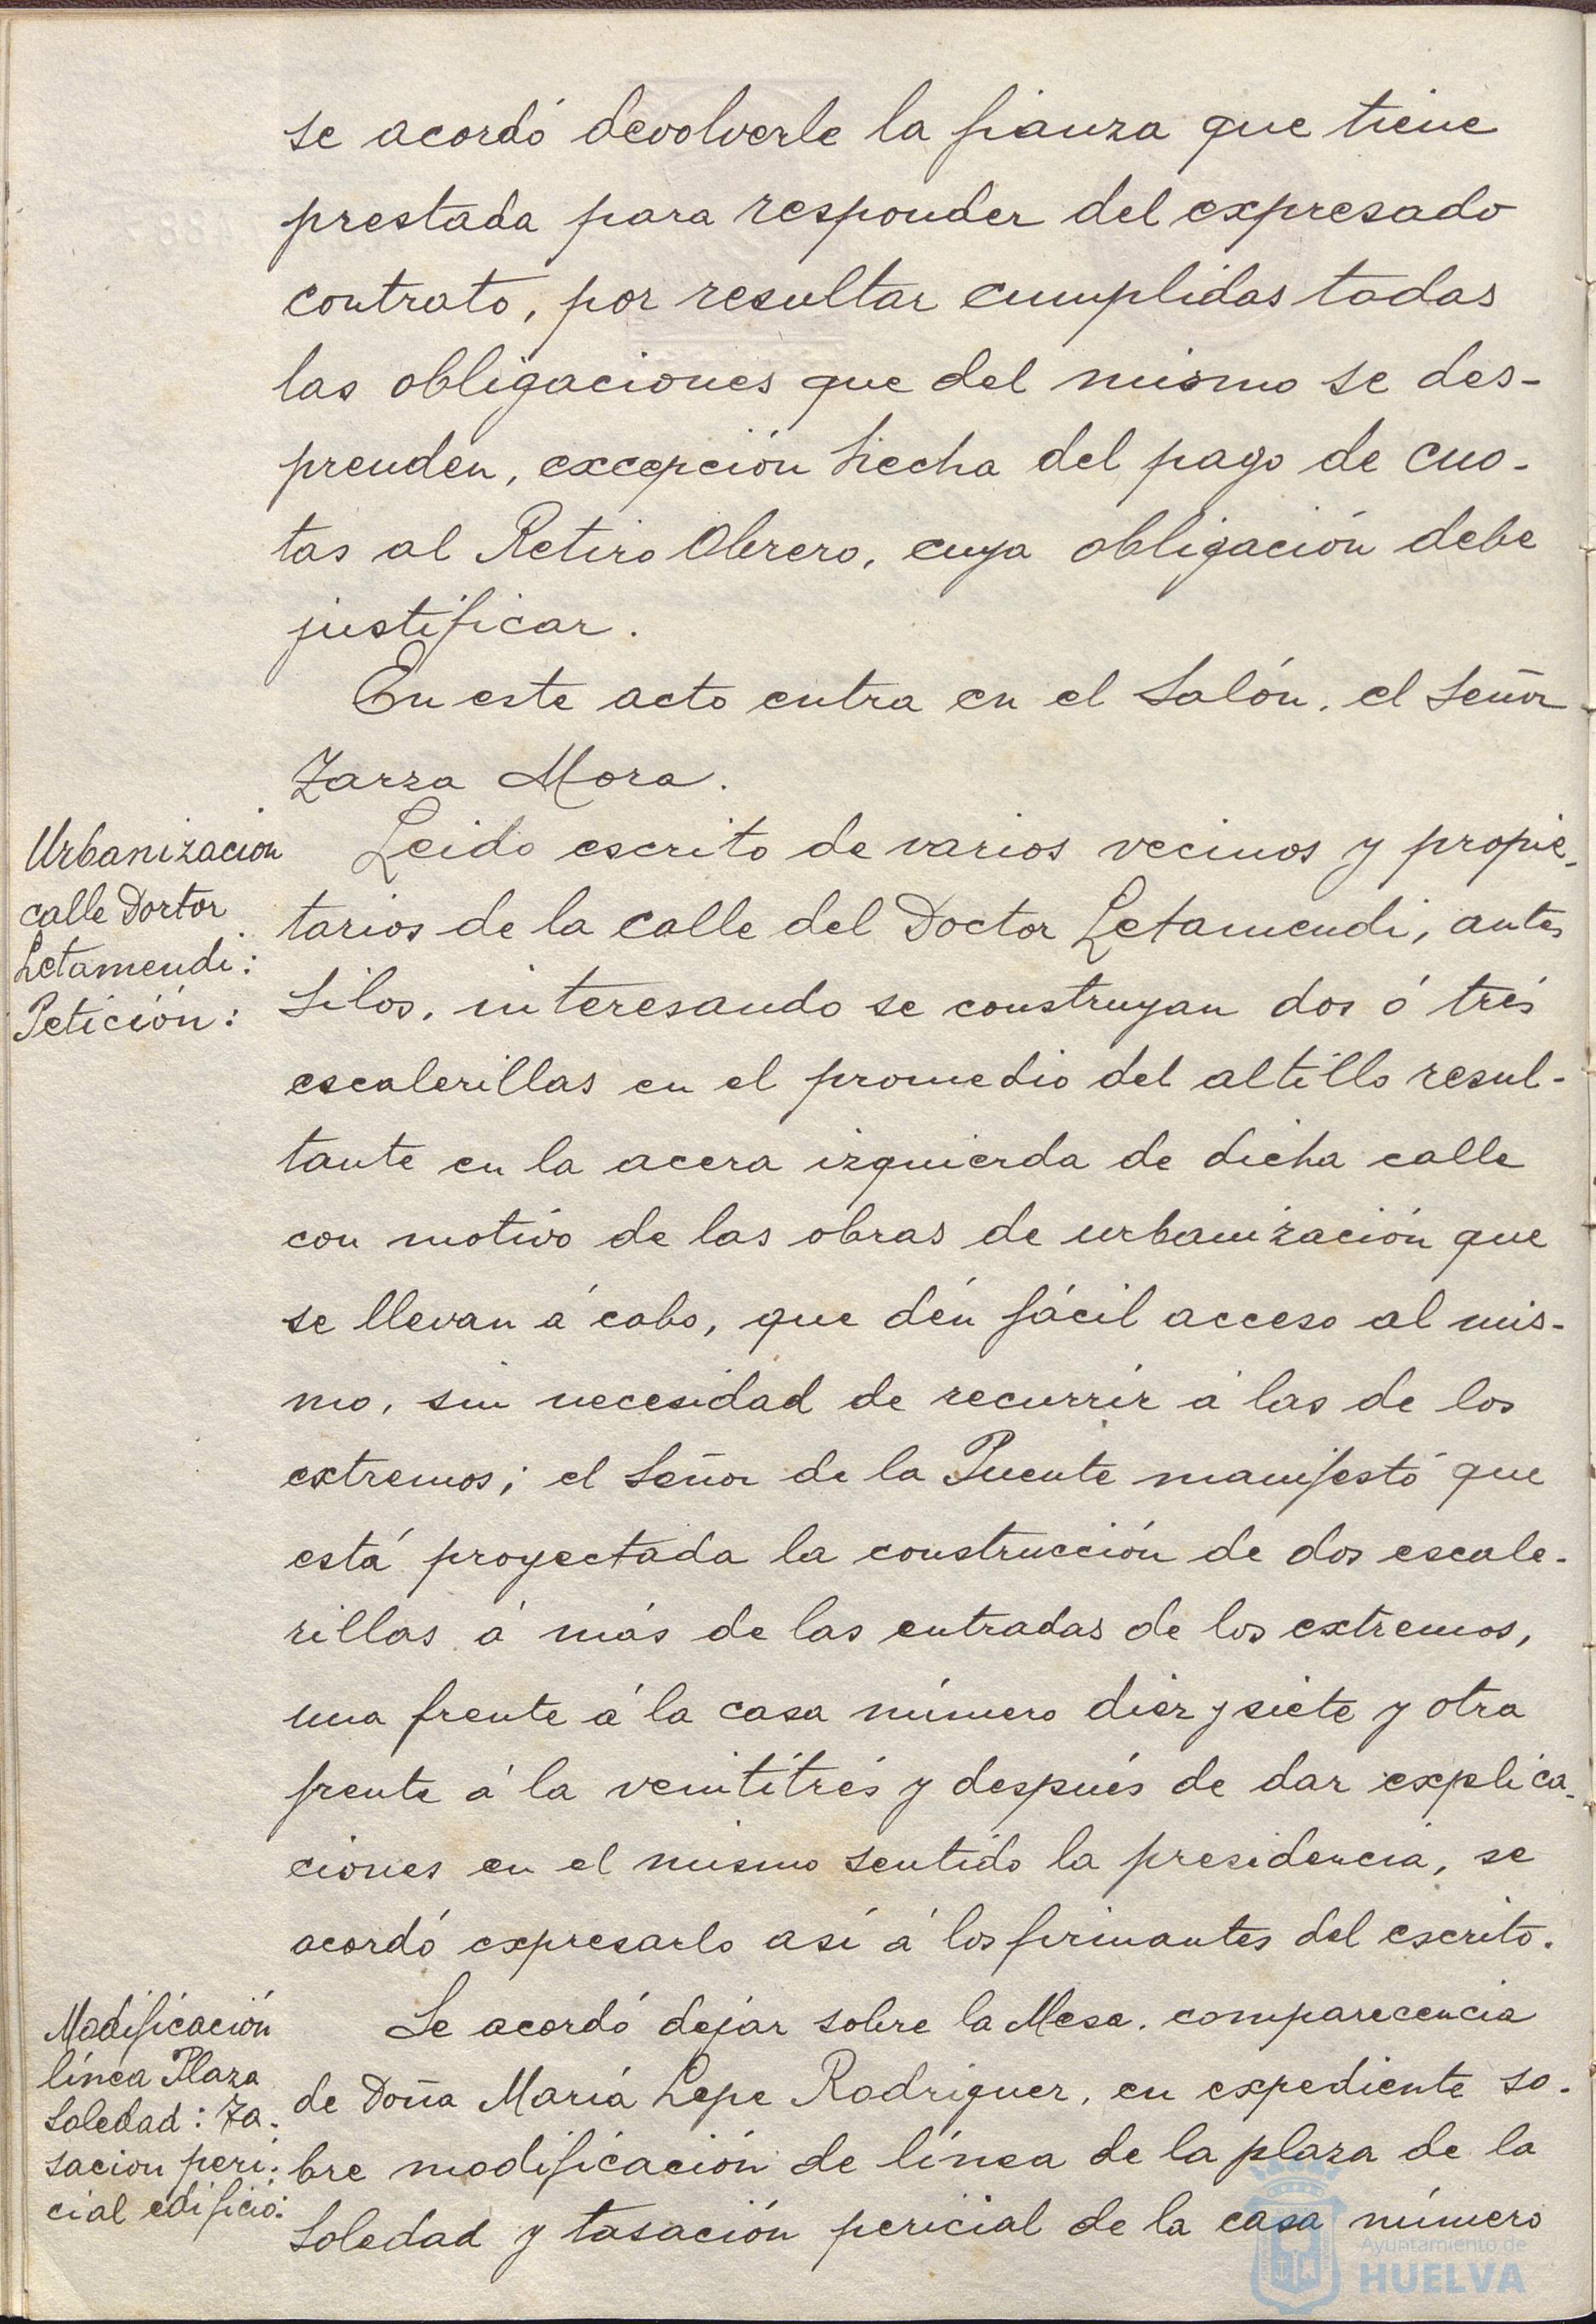 se acordó devolverle la fianza que tiene
prestada para responder del expresado
contrato, por resultar cumplidas todas
las obligaciones que del mismo se des-
prenden, excepción hecha del pago de cuo-
tas al Retiro Obrero, cuya obligación debe
justificar.
En este acto entra en el Salón, el Señor
Zarza Mora.
Urbanizacion
calle Doctor
Letamendi:
Petición:
Leido escrito de varios vecinos y propie-
tarios de la calle del Doctor Letamendi, antes
Silos, interesando se construyan dos ó trés
escalerillas en el promedio del altillo resul-
tante en la acera izquierda de dicha calle
con motivo de las obras de urbanización que
se llevan á cabo, que dén fácil acceso al mis-
mo, sin necesidad de recurrir á las de los
extremos; el Señor de la Puente manifestó que
está proyectada la construcción de dos escale-
rillas á más de las entradas de los extremos,
una frente á la casa número diez y siete y otra
frente á la veintitrés y después de dar explica-
ciones en el mismo sentido la presidencia, se
acordó expresarlo así á los firmantes del escrito.
Modificación
línea Plaza
Soledad: Ta-
sacion peri-
cial edificio:
Se acordó dejar sobre la Mesa, comparecencia
de Doña María Lepe Rodriguez, en expediente so-
bre modificación de línea de la plaza de la
Soledad y tasación pericial de la casa número
Ayuntamiento de
HUELVA